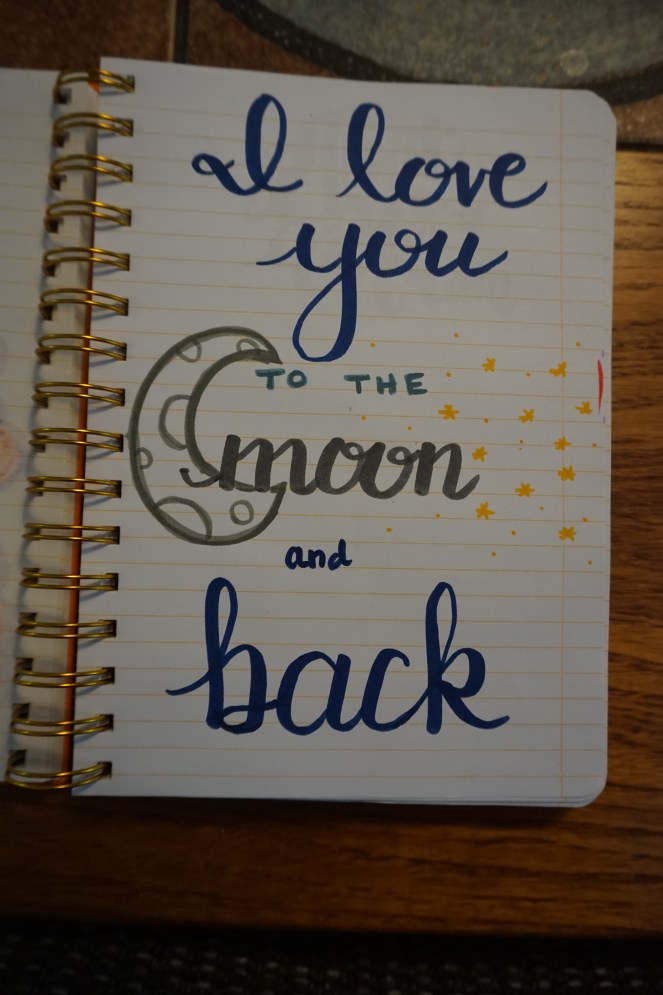 I love
you
TO THE
moon
and
back